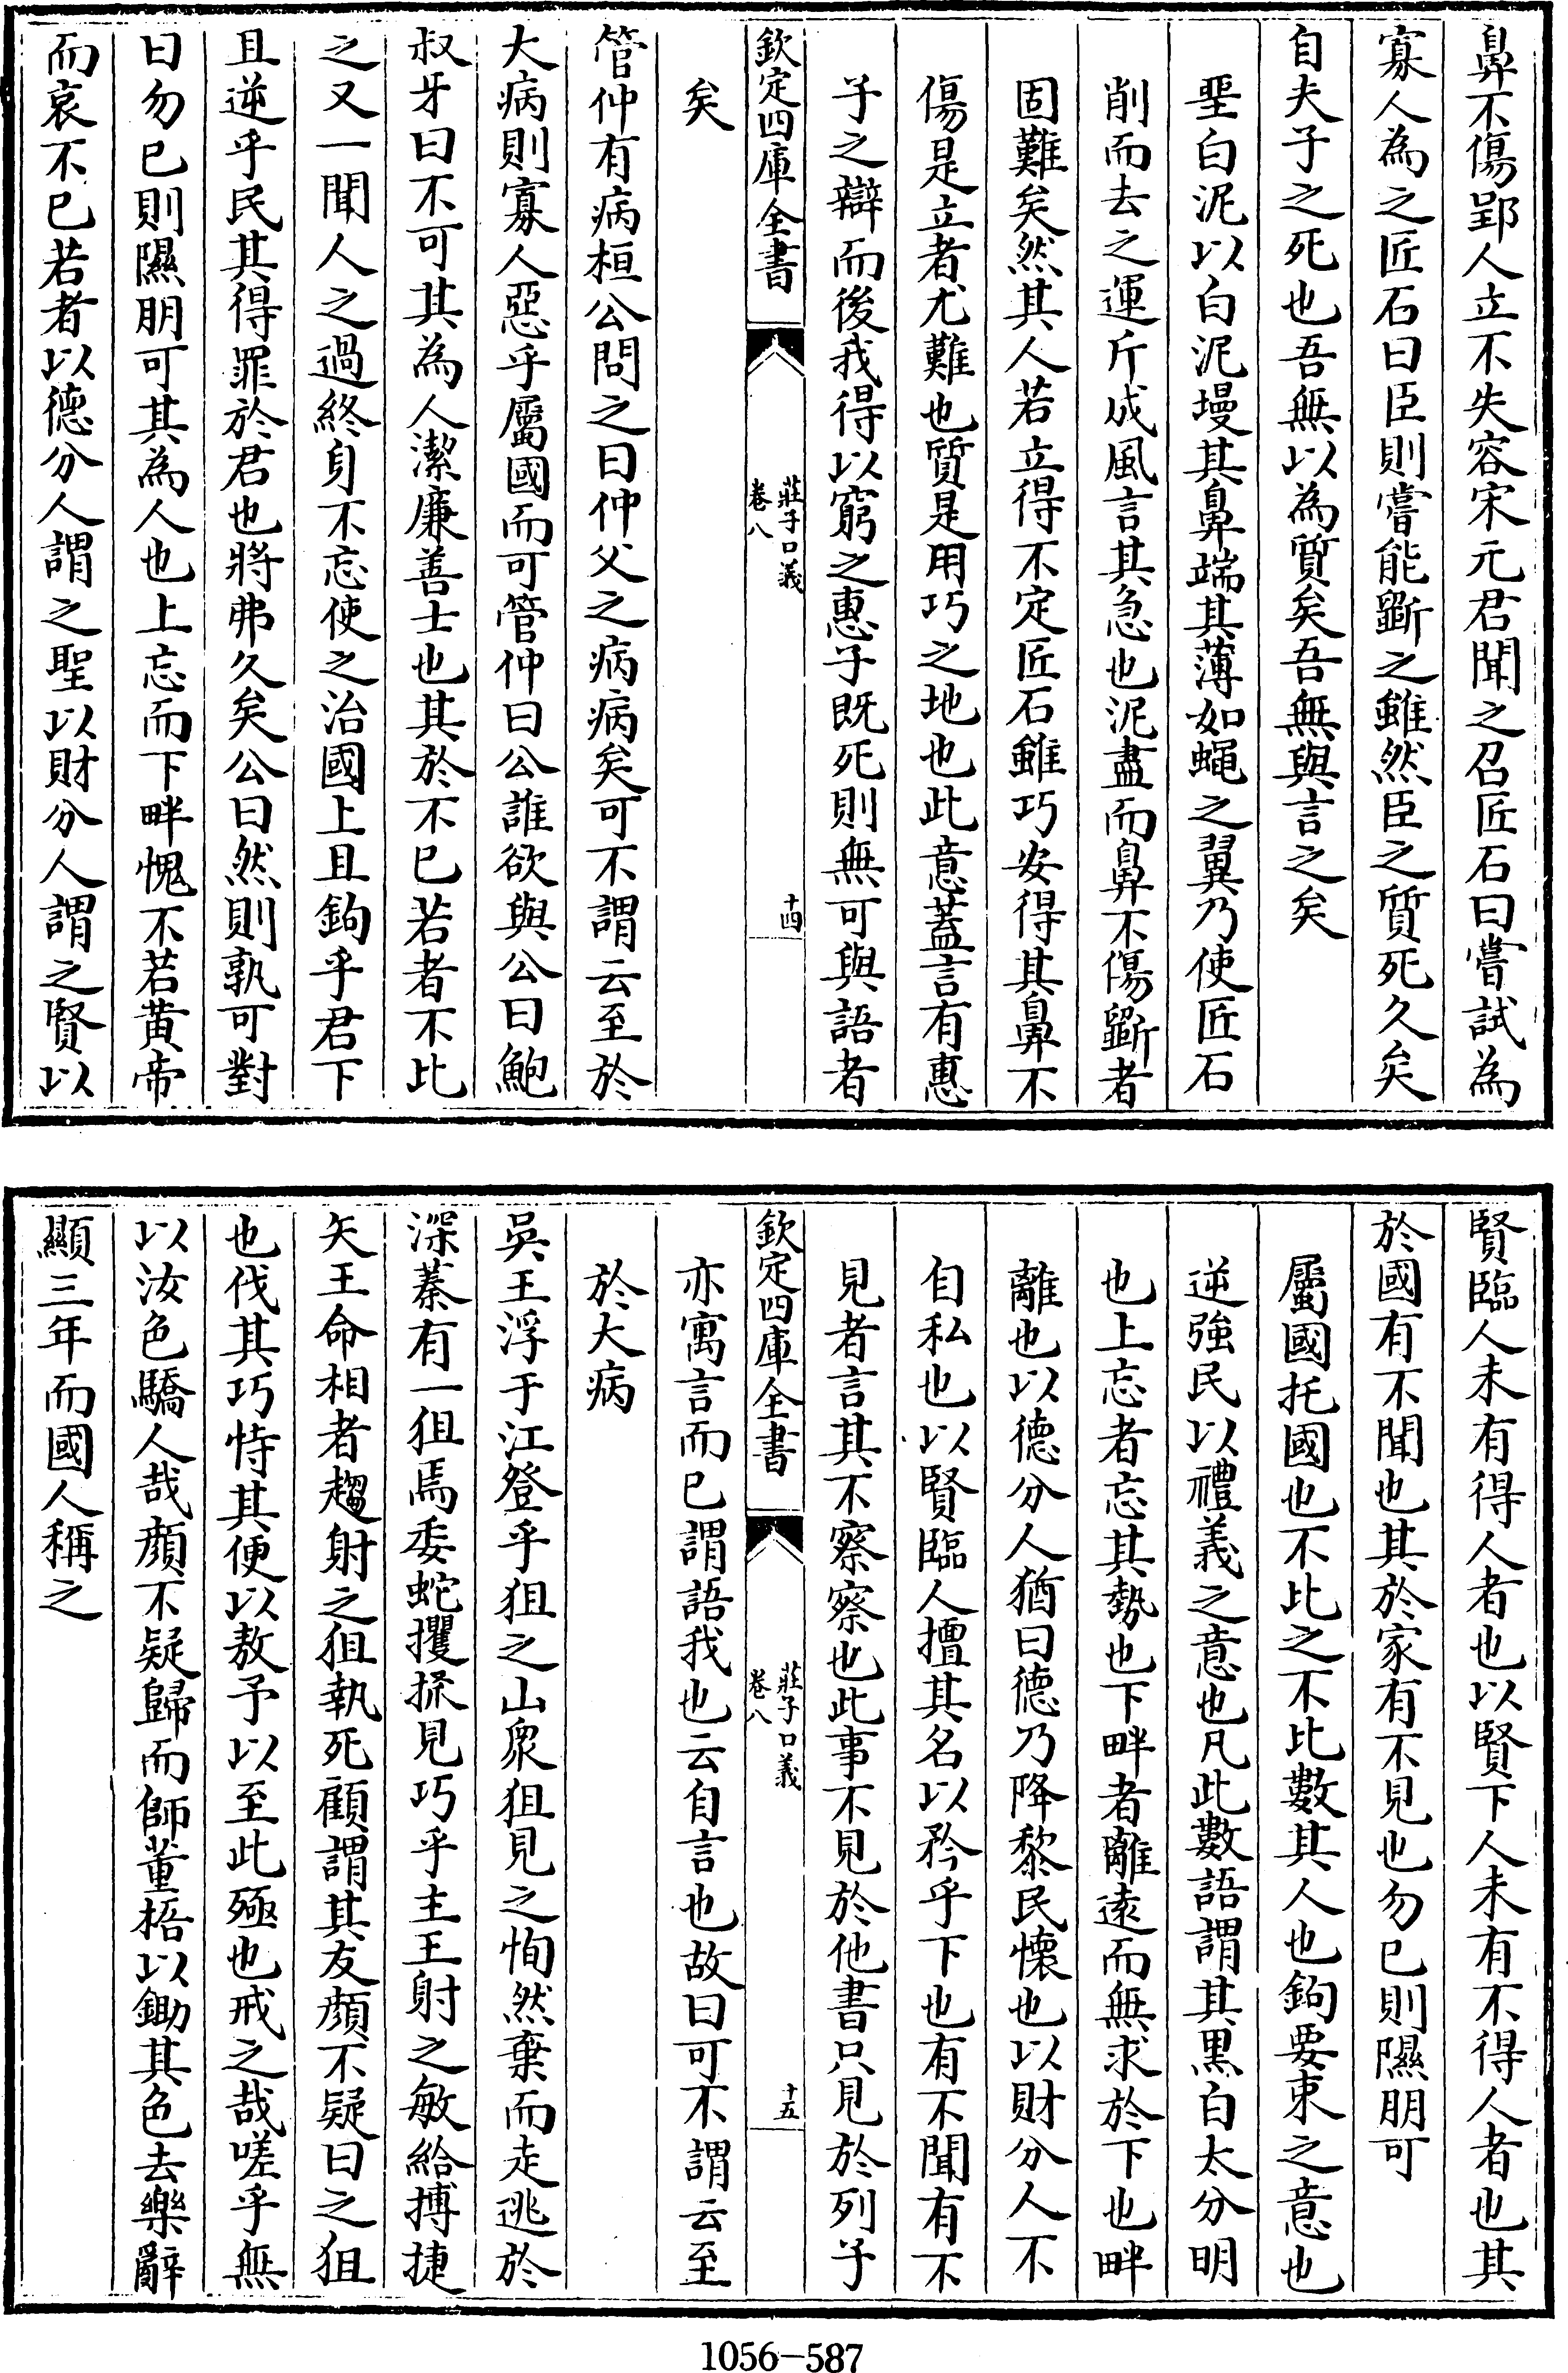 鼻不傷郢人立不失容宋元君聞之召匠石曰嘗試為
寡人為之匠石曰臣則嘗能斲之雖然臣之質死久矣
自夫子之死也吾無以為質矣吾無與言之矣
堊白泥以白泥墁其鼻端其薄如蠅之翼乃使匠石
削而去之運斤成風言其急也泥盡而鼻不傷斲者
固難矣然其人若立得不定匠石雖巧安得其鼻不
傷是立者尤難也質是用巧之地也此意蓋言有惠
子之辯而後我得以窮之惠子既死則無可與語者
欽定四庫全書
莊子口義
卷八
十四
矣
管仲有病桓公問之曰仲父之病病矣可不謂云至於
大病則寡人惡乎屬國而可管仲曰公誰欲與公曰鮑
叔牙曰不可其為人潔廉善士也其於不已若者不比
之又一聞人之過終身不忘使之治國上且鉤乎君下
且逆乎民其得罪於君也將弗久矣公曰然則孰可對
曰勿已則隰朋可其為人也上忘而下畔愧不若黃帝
而哀不已若者以德分人謂之聖以財分人謂之賢以
賢臨人未有得人者也以賢下人未有不得人者也其
於國有不聞也其於家有不見也勿已則隰朋可
屬國托國也不比之不比數其人也鉤要束之意也
逆強民以禮義之意也凡此數語謂其黑白太分明
也上忘者忘其勢也下畔者離遠而無求於下也畔
離也以德分人猶曰德乃降黎民懷也以財分人不
自私也以賢臨人擅其名以矜乎下也有不聞有不
見者言其不察察也此事不見於他書只見於列子
欽定四庫全書
莊子口義
卷八
十五
亦寓言而已謂語我也云自言也故曰可不謂云至
於大病
吳王浮于江登乎狙之山衆狙見之恂然棄而走逃於
深蓁有一狙焉委蛇攫搽見巧乎主王射之敏給搏捷
矢王命相者趨射之狙執死顧謂其友顏不疑曰之狙
也伐其巧恃其便以敖予以至此殛也戒之哉嗟乎無
以汝色驕人哉顏不疑歸而師董梧以鋤其色去樂辭
顯三年而國人稱之
1056-587